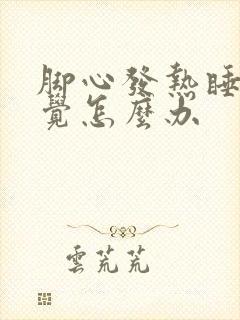 脚心發熱睡
覺怎麼办
雲芃芃